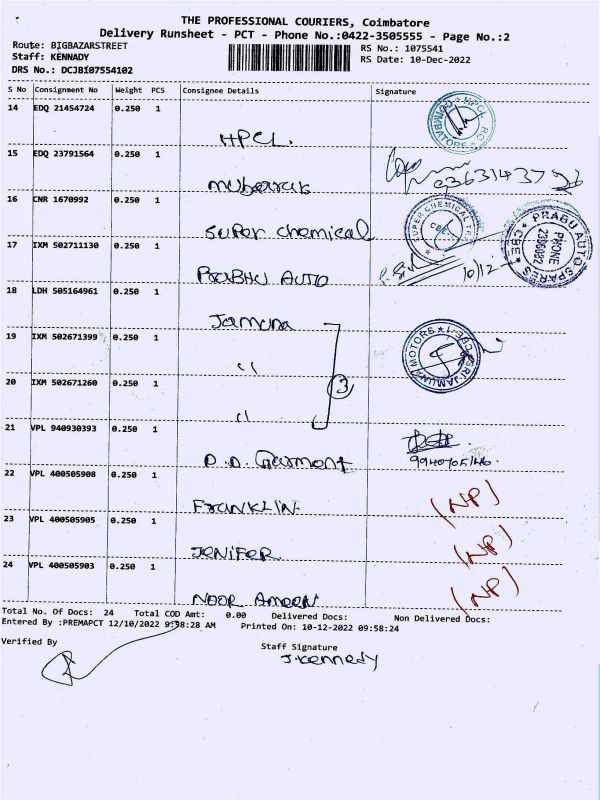 THE PROFESSIONAL COURIERS, Coimbatore
Delivery Runsheet - PCT - Phone No.:0422-3505555 - Page No.:2
Route: BIGBAZARSTREET
Staff: KENNADY
DRS No.: DCJB107554102
RS No.: 1075541
RS Date: 10-Dec-2022
S No Consignment No Weight PCS Consignee Details Signature
14 EDQ 21454724 0.250 1
HPCL.
15 EDQ 23791564 0.250 1
mubarak
16 CNR 1670992 0.250 1
SUPER CHEMICAL
super chemical
17 IXM 502711130 0.250 1
PRABU AUTO SPARES
PHONE
2396082
CBE
10/12
PRABHU AUTO
18 LDH 505164961 0.250 1
Jamuna
19 IXM 502671399 0.250 1
SRI JAMUNA MOTORS
"
3
20 IXM 502671260 0.250 1
"
21 VPL 940930393 0.250 1
D.D. Garment
22 VPL 400505908 0.250 1
FRANKLIN. (NP)
23 VPL 400505905 0.250 1
JENIFER (NP)
24 VPL 400505903 0.250 1
NOOR AMEEN (NP)
Total No. Of Docs: 24 Total COD Amt: 0.00 Delivered Docs: Non Delivered Docs:
Entered By :PREMAPCT 12/10/2022 9:58:28 AM Printed On: 10-12-2022 09:58:24
Verified By
Staff Signature
J. Kennedy